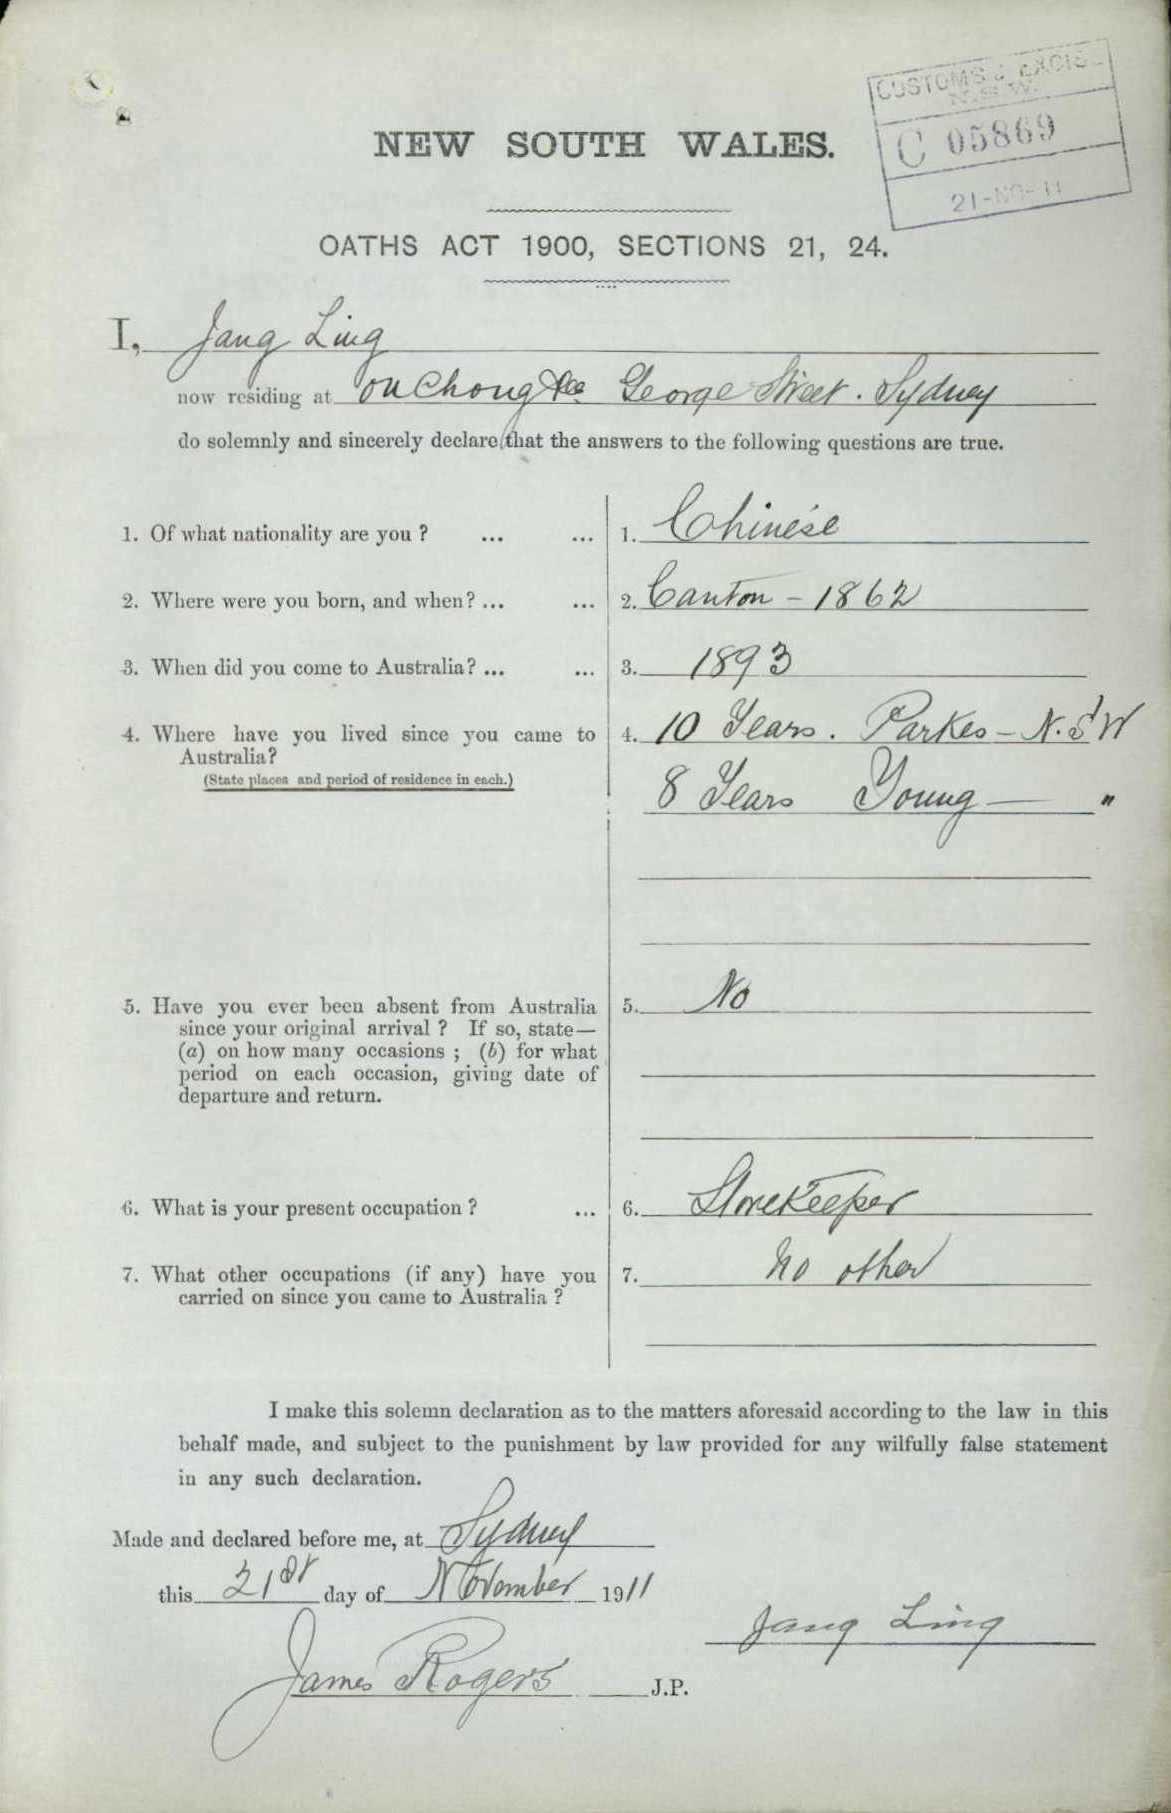 CUSTOMS & EXCISE
N.S.W.
C 05869
21-NO-11
NEW SOUTH WALES.
OATHS ACT 1900, SECTIONS 21, 24.
I, Jang Ling
now residing at On Chong & Co George Street. Sydney
do solemnly and sincerely declare that the answers to the following questions are true.
1. Of what nationality are you ? ... ... 1. Chinese
2. Where were you born, and when? ... ... 2. Canton - 1862
3. When did you come to Australia? ... ... 3. 1893
4. Where have you lived since you came to 4. 10 Years. Parkes - N.S.W
Australia?
(State places and period of residence in each.)
8 Years Young — "
5. Have you ever been absent from Australia 5. No
since your original arrival ? If so, state—
(a) on how many occasions ; (b) for what
period on each occasion, giving date of
departure and return.
6. What is your present occupation ? ... 6. Storekeeper
7. What other occupations (if any) have you 7. No other
carried on since you came to Australia ?
I make this solemn declaration as to the matters aforesaid according to the law in this
behalf made, and subject to the punishment by law provided for any wilfully false statement
in any such declaration.
Made and declared before me, at Sydney
this 21st day of November 1911
Jang Ling
James Rogers J.P.